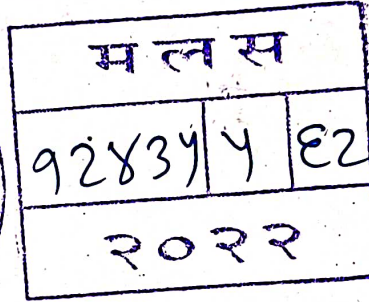 म ल स
१२४३५ ५ ६२
२०२२